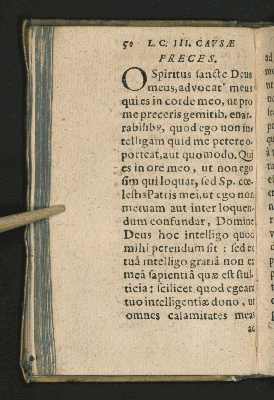 50 L. C. III. CAVSÆ
PRECES.
O Spiritus sancte Deus
meus, advocat' meus
qui es in corde meo, ut pro
me preceris gemitib, enar-
rabilib9, quod ego non in-
telligam quid me petere o-
porteat, aut quomodo. Qui
es in ore meo, ut non ego
sim qui loquar, sed Sp. cœ-
lestis Patris mei, ut ego non
metuam aut inter loquen-
dum confundar, Domine
Deus hoc intelligo quod
mihi petendum sit: sed et
tuâ intelligo gratiâ non e
meâ sapientiâ quæ est stul-
ticia; scilicet quod egeam
tuo intelligentiæ dono, ut
omnes calamitates meas